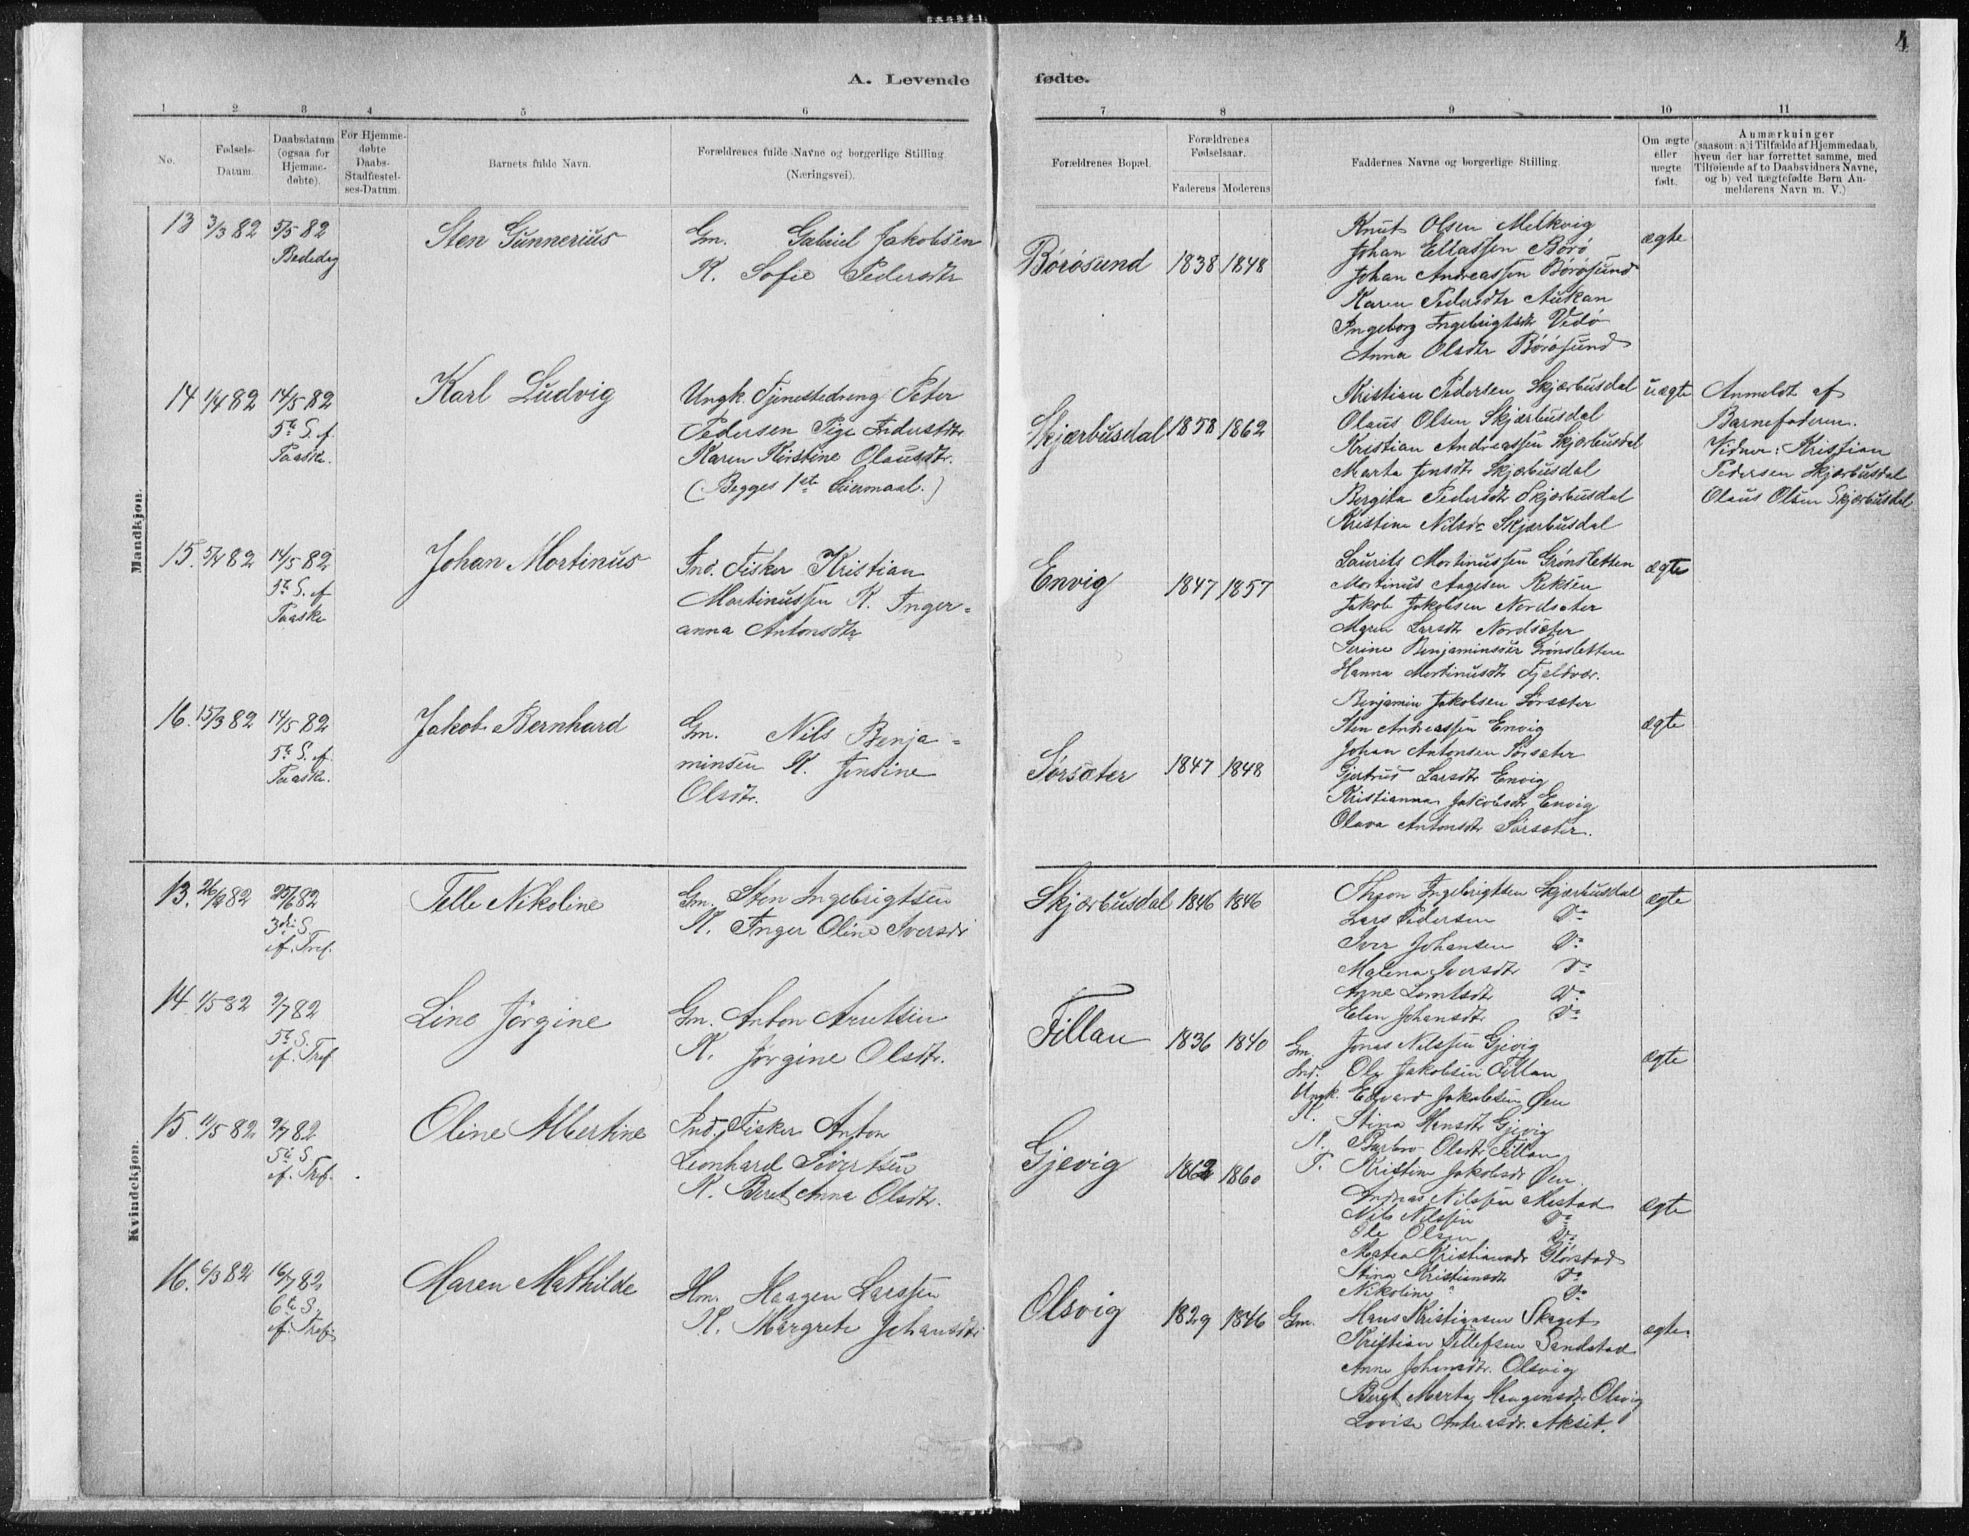 4
A. Levende fødte.
1 2 3 4 5 6 7 8 9 10 11
No.
Fødsels-
Datum.
Daabsdatum
(ogsaa for
Hjemme-
døbte).
For Hjemme-
døbte
Daabs-
Stadfæstel-
ses-Datum.
Barnets fulde Navn.
Forældrenes fulde Navne og borgerlige Stilling
(Næringsvei).
Forældrenes Bopæl.
Forældrenes
Fødselsaar.
Faderens Moderens
Faddernes Navne og borgerlige Stilling.
Om ægte
eller
uægte
født.
Anmærkninger
(saasom: a) i Tilfælde af Hjemmedaab,
hvem der har forrettet samme, med
Tilføiende af to Daabsvidners Navne,
og b) ved uægtefødte Børn An-
melderens Navn m. V.)
Mandkjøn.
13 3/3 82 5/5 82
Bededag
Sten Gunnerius
Gm. Gabriel Jakobsen
K. Sofie Pedersdtr
Børøsund 1838 1848
Knut Olsen Melkvig
Johan Eliassen Børø
Johan Andreassen Børøsund
Karen Pedersdtr Aukan
Ingeborg Ingebrigtsdtr Vedø
Anna Olsdtr Børøsund
ægte
14 1/4 82 14/5 82
5te S. ef.
Paaske.
Karl Ludvig
Ungk. Tjenestedreng Peter
Pedersen Pige Inderstdtr.
Karen Kirstine Olausdtr.
(Begges 1ste Leiermaal.)
Skjærbusdal 1858 1862
Kristian Pedersen Skjærbusdal
Olaus Olsen Skjærbusdal
Kristian Andreassen Skjærbusdal
Marta Jensdtr Skjærbusdal
Bergita Pedersdtr Skjærbusdal
Kristine Nilsdr Skjærbusdal
uægte
Anmeldt af
Barnefaderen.
Vidner: Kristian
Pedersen Skjærbusdal
Olaus Olsen Skjærbusdal
15. 5/4 82 14/5 82
5te S. ef
Paaske
Johan Mortinus
Ind. Fisker Kristian
Martinussen K. Inger-
anna Antonsdtr
Envig 1847 1857
Laurits Mortinussen Grønsletten
Mortinus Aagesen Reksen
Jakob Jakobsen Nordsæter
Maren Larsdtr Nordsæter
Serine Benjaminsdr Grønsletten
Hanna Mortinusdtr Fjeldvær.
ægte
16. 15/3 82 14/5 82
5te S. ef.
Paaske.
Jakob Bernhard
Gm. Nils Benja-
minsen K. Jensine
Olsdtr.
Sørsæter 1847 1848
Benjamin Jakobsen Sørsæter
Sten Andreassen Envig
Johan Antonsen Sørsæter
Gjertrud Larsdtr Envig
Kristianna Jakobsdtr Envig
Olava Antonsdtr Sørsæter.
ægte
Kvindekjøn.
13. 26/2 82 25/6 82
3die S.
ef. Tref.
Telle Nikoline
Gm. Sten Ingebrigtsen
K. Inger Oline Iversdr
Skjærbusdal 1846 1846
Ingebrigtsen Skjærbusdal
Lars Pedersen Do
Iver Johansen Do
Malena Iversdtr Do
Anne Lorntsdtr Do
Elen Johansdtr Do
ægte
14. 1/5 82 9/7 82
5te S.
ef. Tref.
Line Jørgine
Gm. Anton Arntsen
K. Jørgine Olsdtr.
Fillan 1836 1840
Gm. Jonas Nilssen Gjevig
Ind. Ole Jakobsen Fillan
Ungk. Edvard Jakobsen Øen
K. Stina Jensdtr Gjevig
K. Barbro Olsdtr Fillan
P. Kristine Jakobsdr Øen
ægte
15. 11/5 82 9/7 82
5te S.
ef. Tref.
Oline Albertine
Ind. Fisker Anton
Leonhard Sivertsen
K. Beret Anna Olsdtr.
Gjevig 1862 1860
Andreas Nilssen Mastad
Nils Nilssen Do
Ole Olsen Do
Kristiansdr Glørstad
Stina Kristiansdtr Do
Nikoline " Do
ægte
16. 6/3 82 16/7 82
6te S.
ef. Tref.
Maren Mathilde
Hm. Haagen Larssen
K. Margrete Johansdtr
Olsvig 1829 1846
Gm. Hans Kristiansen Skaget
Kristian Tellefsen Sandstad
Anne Johansdtr. Olsvig
Beret Marta Haagensdtr Olsvig
Lovise Andreasdr. Akset.
ægte